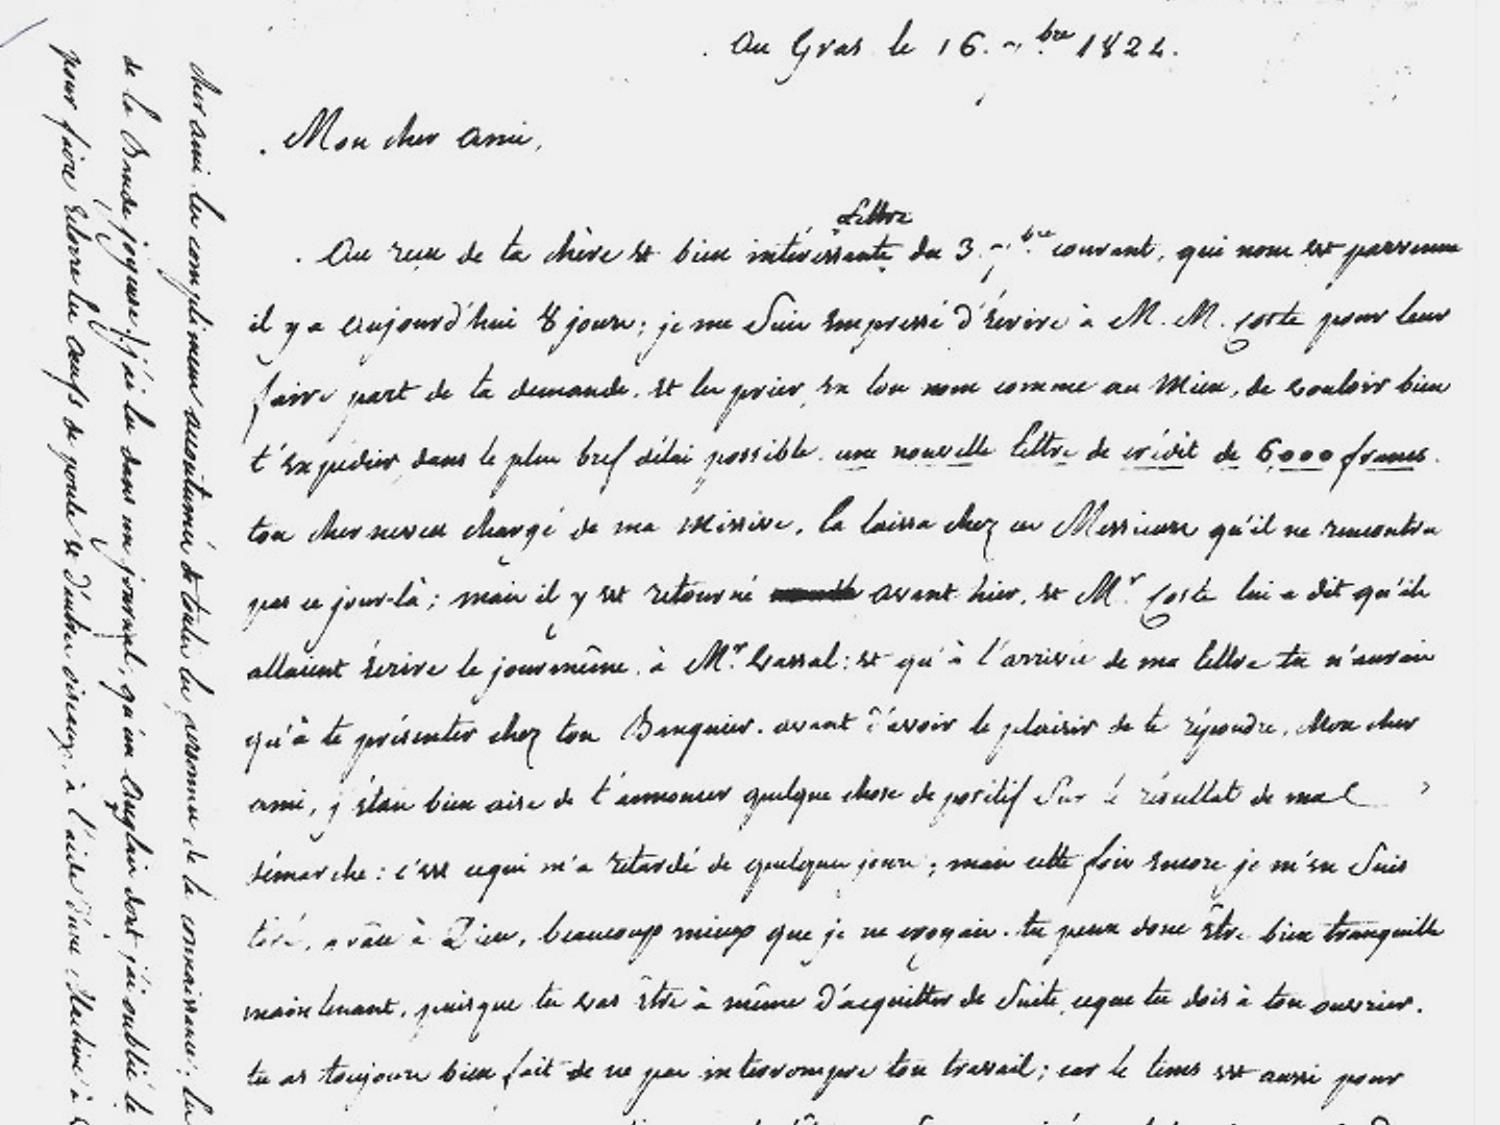 Au Gras le 16. 9.bre 1822.
Mon cher ami,
lettre
Au reçu de ta chère et bien intéressante du 3. 9.bre courant, qui nous est parvenue
il y a aujourd'hui 8 jours; je me suis empressé d'écrire à M. M. Coste pour leur
faire part de ta demande, et les prier, en ton nom comme au mien, de vouloir bien
t'expédier, dans le plus bref délai possible, une nouvelle lettre de crédit de 6,000 francs.
ton cher neveu chargé de ma missive, la laissa chez ces Messieurs qu'il ne rencontra
pas ce jour-là; mais il y est retourné avant hier, et Mr. Coste lui a dit qu'ils
allaient écrire le jour même, à Mr. Vassal: et qu'à l'arrivée de ma lettre tu n'aurais
qu'à te présenter chez ton Banquier. avant d'avoir le plaisir de te répondre, Mon cher
ami, j'étais bien aise de t'annoncer quelque chose de positif sur le résultat de ma
démarche: c'est ce qui m'a retardé de quelques jours; mais cette fois encore je m'en suis
tiré, grâce à Dieu, beaucoup mieux que je ne croyais. tu peux donc être bien tranquille
maintenant, puisque tu vas être à même d'acquitter de suite, ce que tu dois à ton ouvrier.
tu as toujours bien fait de ne pas interrompre ton travail; car le tems est aussi pour
cher ami les complimens accoutumés de toutes les personnes de la connaissance; les
de la Bande joyeuse. j'ai lu dans un journal, qu'un Anglais dont j'ai oublié le
pour faire éclorre les œufs de poule et d'autres oiseaux, à l'aide d'une Machine à